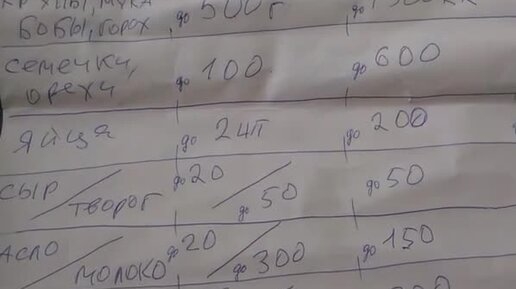 бобы, горох до 500г
семечки, до 100 до 600
орехи
яйця до 2шт до 200
сыр / творог до 20 / до 50 до 50
асло / молоко до 20 / до 300 до 150